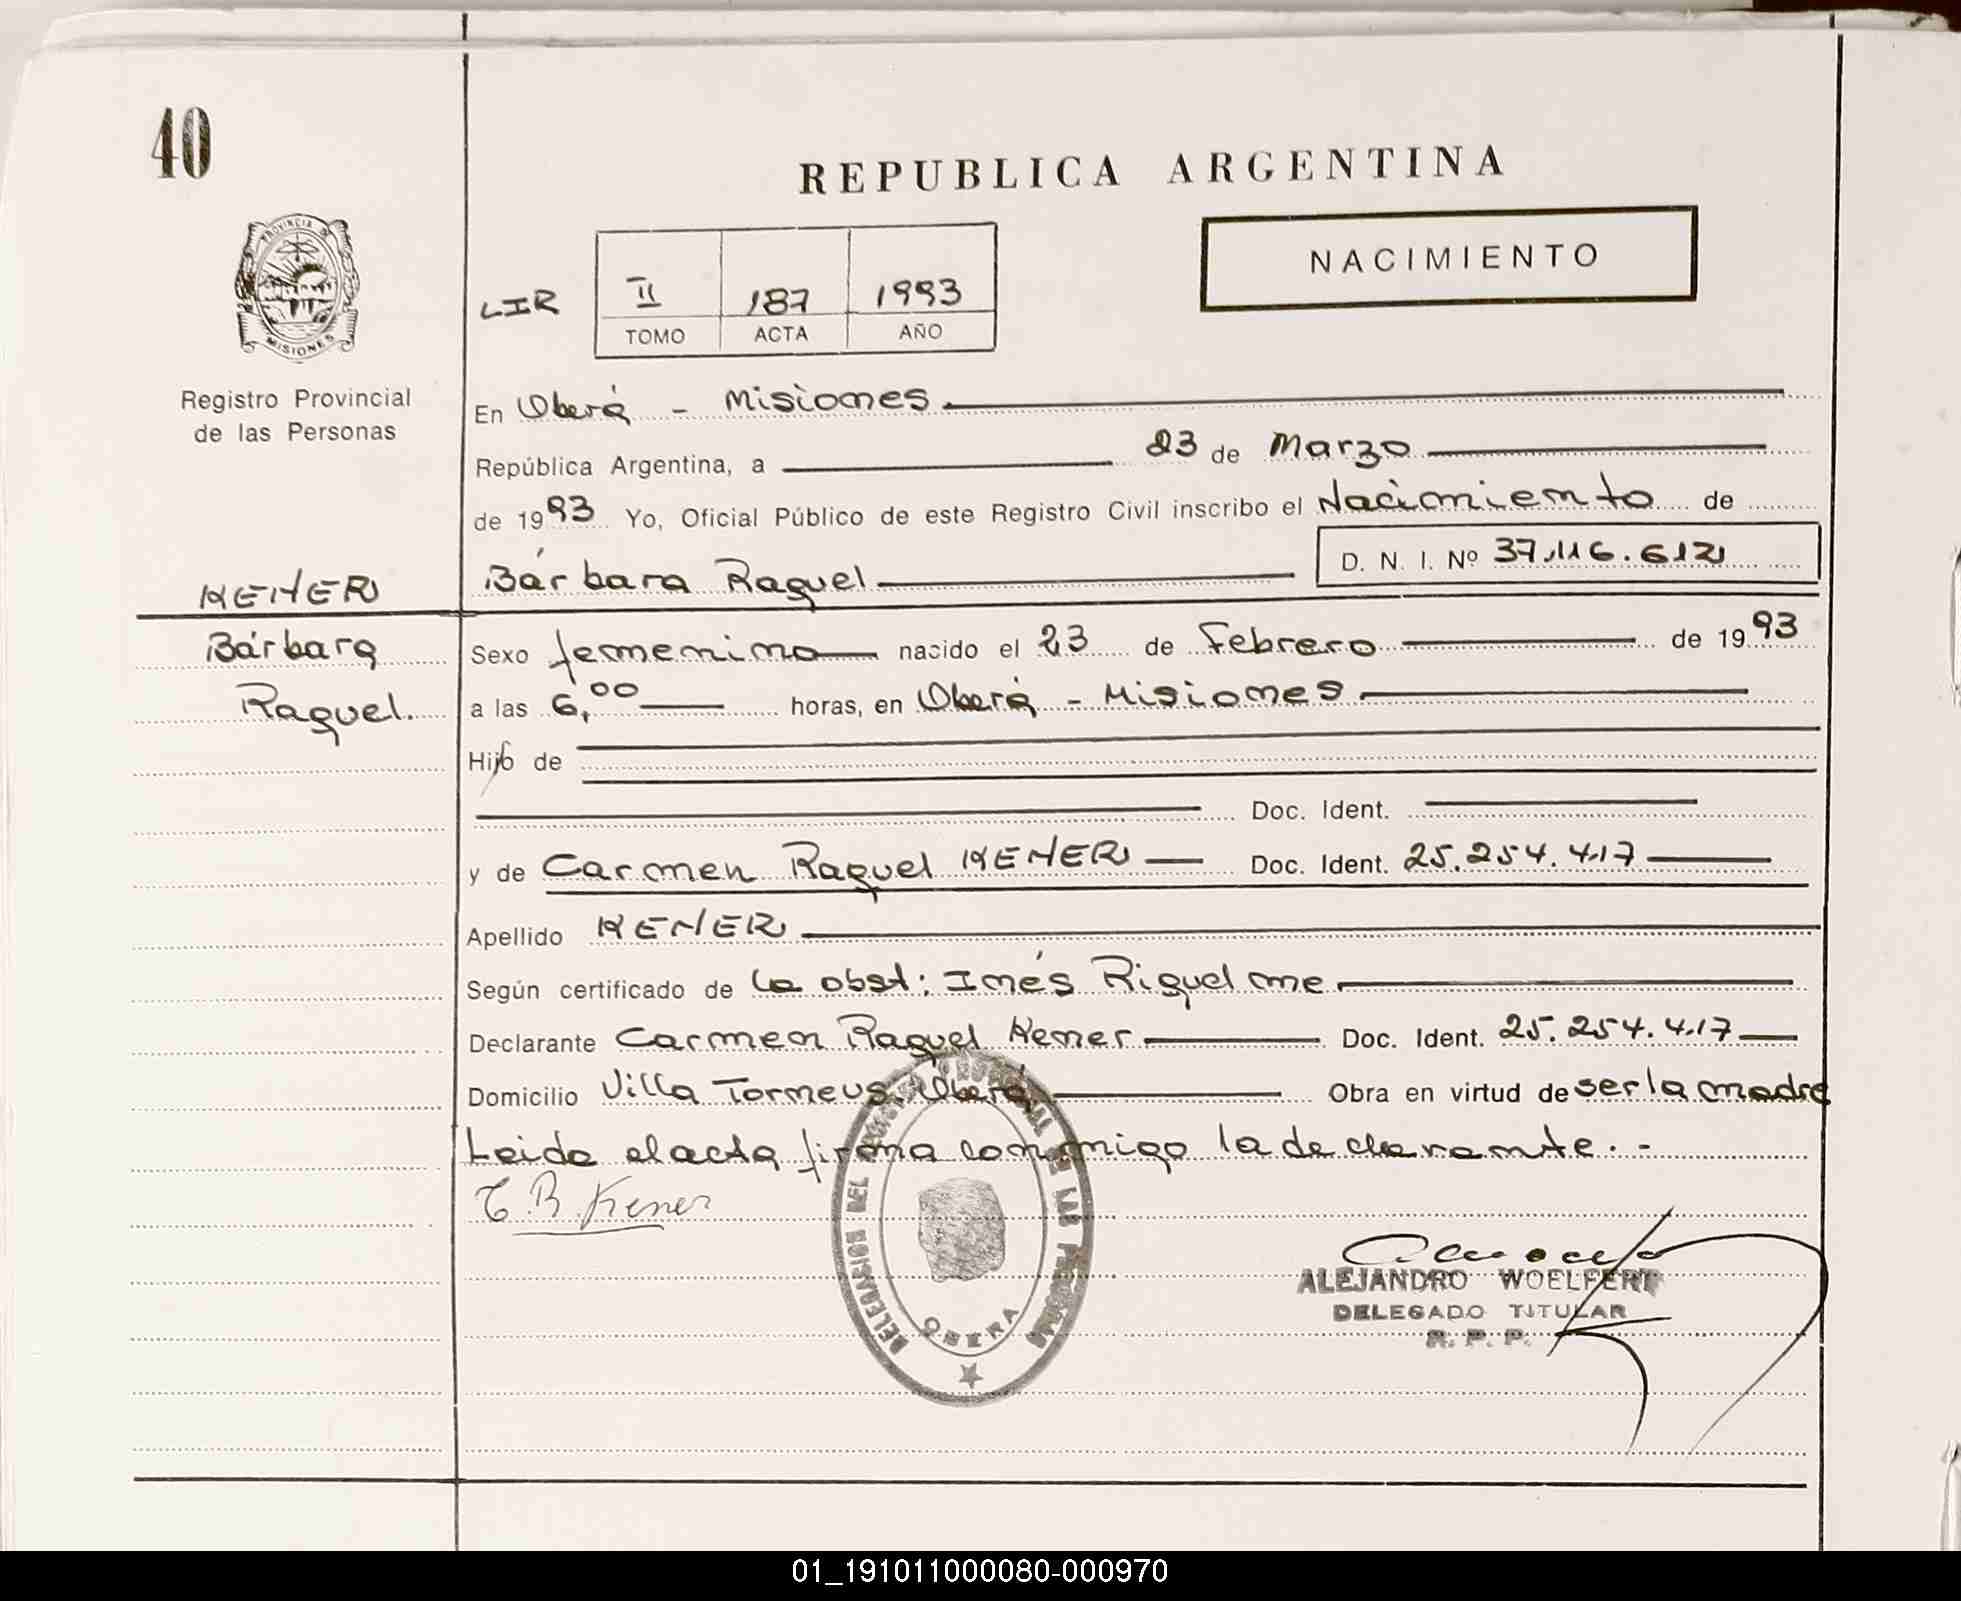 40
REPUBLICA ARGENTINA
PROVINCIA DE
MISIONES
NACIMIENTO
LIR II 187 1993
TOMO ACTA AÑO
Registro Provincial
de las Personas
En Oberá - Misiones
República Argentina, a 23 de Marzo
de 1993 Yo, Oficial Público de este Registro Civil inscribo el Nacimiento de
D. N. I. Nº 37.116.612
KENER Bárbara Raquel
Bárbara
Raquel.
Sexo femenino nacido el 23 de Febrero de 1993
a las 6,00 horas, en Oberá - Misiones
Hijo de
Doc. Ident.
y de Carmen Raquel KENER Doc. Ident. 25.254.417
Apellido KENER
Según certificado de la obst: Inés Riquelme
Declarante Carmen Raquel Kener Doc. Ident. 25.254.417
Domicilio Villa Torneus. Oberá Obra en virtud de ser la madre
Leida el acta firma conmigo la declarante. -
C. R. Kener
DELEGACION DEL REGISTRO PROVINCIAL DE LAS PERSONAS
OBERA
ALEJANDRO WOELFERT
DELEGADO TITULAR
R. P. P.
01_191011000080-000970